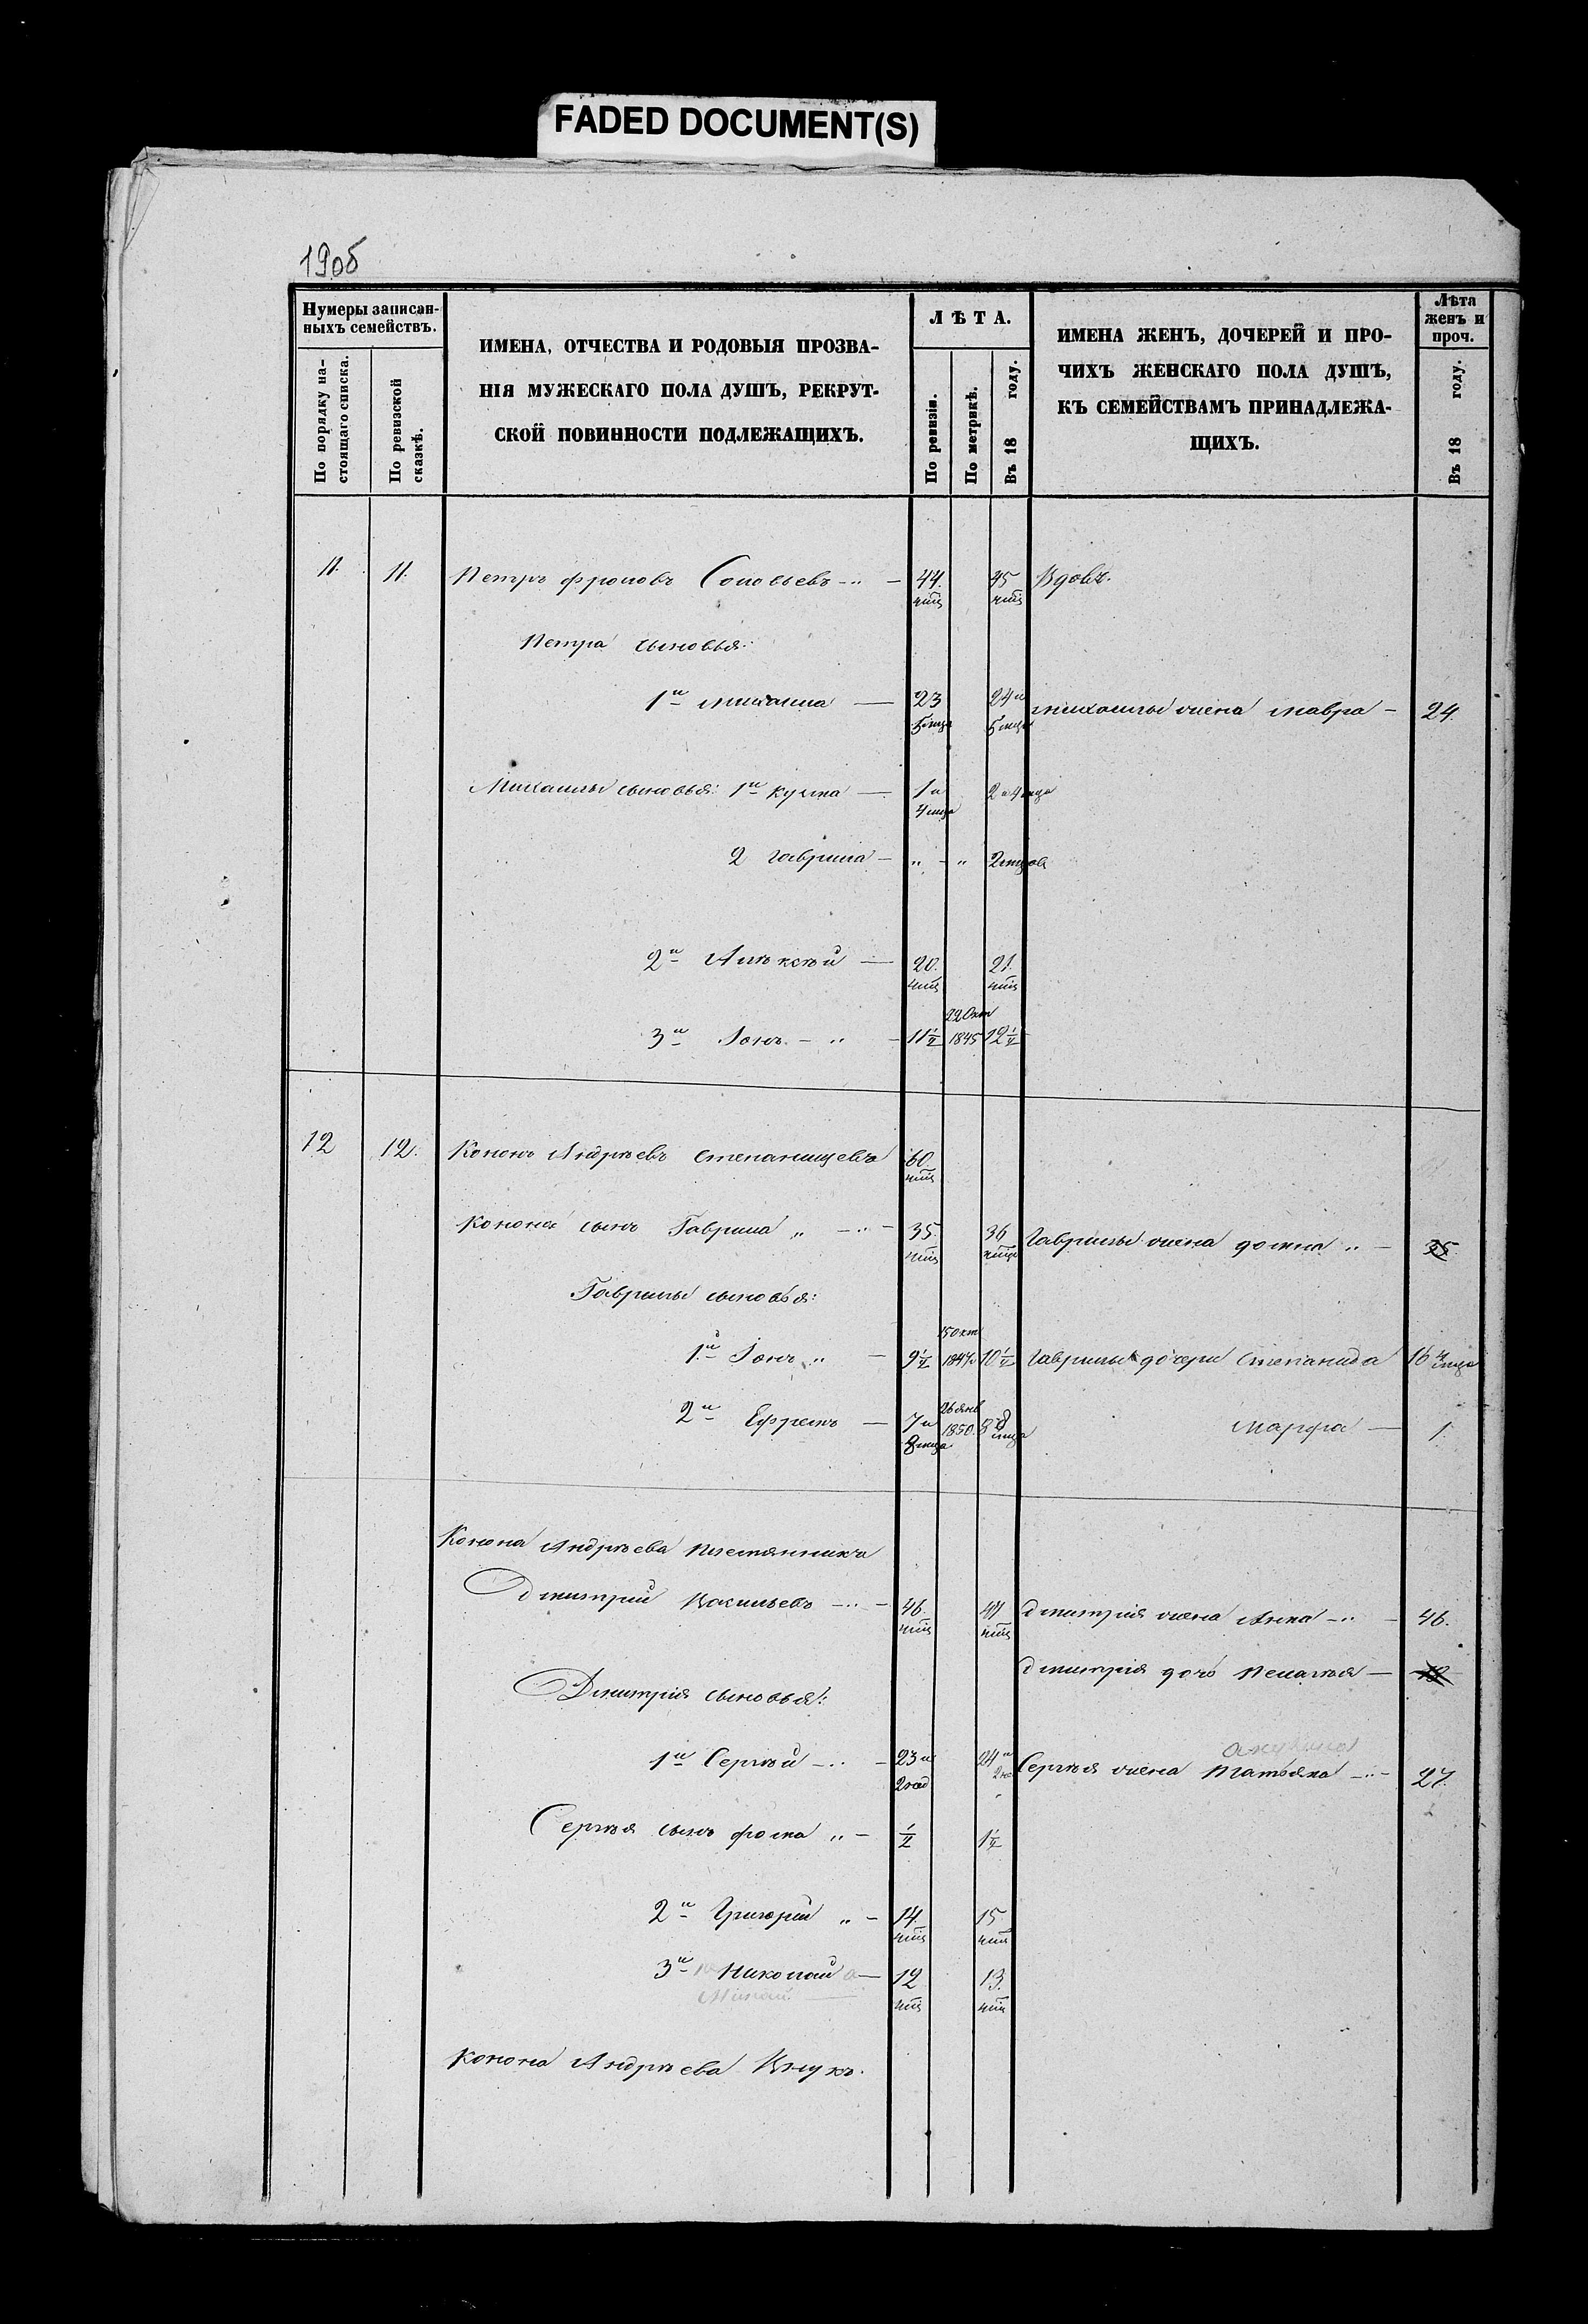 FADED DOCUMENT(S)
190б
Нумеры записан-
ныхъ семействъ.
По порядку на-
стоящаго списка.
По ревизской
сказкѣ.
ИМЕНА, ОТЧЕСТВА И РОДОВЫЯ ПРОЗВА-
НІЯ МУЖЕСКАГО ПОЛА ДУШЪ, РЕКРУТ-
СКОЙ ПОВИННОСТИ ПОДЛЕЖАЩИХЪ.
ЛѢТА.
По ревизіи.
По метрикѣ.
Въ 18 году.
ИМЕНА ЖЕНЪ, ДОЧЕРЕЙ И ПРО-
ЧИХЪ ЖЕНСКАГО ПОЛА ДУШЪ,
КЪ СЕМЕЙСТВАМЪ ПРИНАДЛЕЖА-
ЩИХЪ.
Лѣта
женъ и
проч.
Въ 18 году.
11. 11. Петръ Фроловъ Соловьевъ 44. 45 Вдовъ.
Петра сыновья:
1й Михаила 23 24 и Михаилы жена Мавра 24.
5 мца 5 мца
Михаилы сыновья: 1й Кузма 1 и 2 и 4 мца
4 мца
2 Гаврила " - " 2 мцов
2й Алѣксѣй 20. 21.
22 Окт
3й Іонъ 11½ 1845 12½
12 12. Кононъ Андрѣевъ Степанищевъ 60
Конона сынъ Гаврила 35. 36 Гаврилы жена Домна 35
Гаврилы сыновья:
15 Окт
1й Іонъ 9½ 1847 10½ Гаврилы дочери Степанида 16 мца
26 Янв
2й Ефремъ 7 и 1850. 8 и Марфа 1.
8 мца мца
Конона Андрѣева племянникъ
Дмитрий Васильевъ 46. 47 Дмитрія жена Анна 46.
Дмитрія дочь Пелагѣя
Дмитрія сыновья:
1й Сергѣй 23 и 24 и Сергѣя жена Татьяна 27.
2 нед
Сергѣя сынъ Фома ½ 1½
2й Григорій 14. 15.
3й Николай 12 13.
Конона Андрѣева Внукъ.